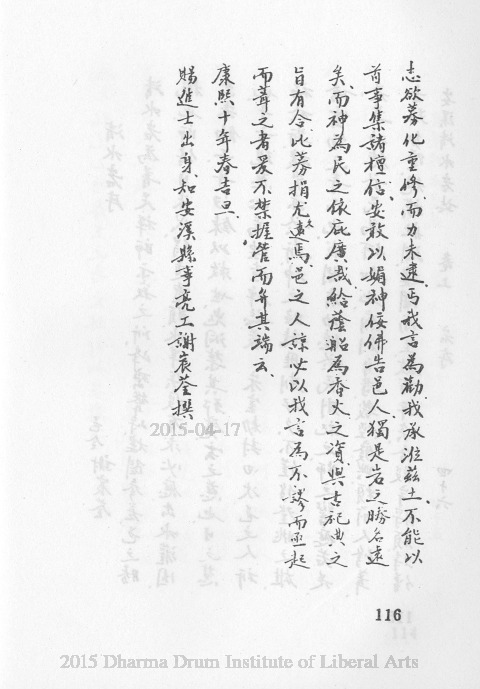 志欲募化重修，而力未逮，丐我言為勸，我承涖茲土，不能以
首事集諸檀信，安敢以媚神佞佛告邑人，獨是岩之勝名遠
矣，而神為民之依庇廣哉，給蔭船為香火之資，與古祀典之
旨有合，比募捐尤遠焉，邑之人諒必以我言為不謬，而亟起
而葺之者，爰不禁握管而弁其端云。
康熙十年春吉旦。
賜進士出身知安溪縣事亮工謝宸荃撰
2015-04-17
116
2015 Dharma Drum Institute of Liberal Arts